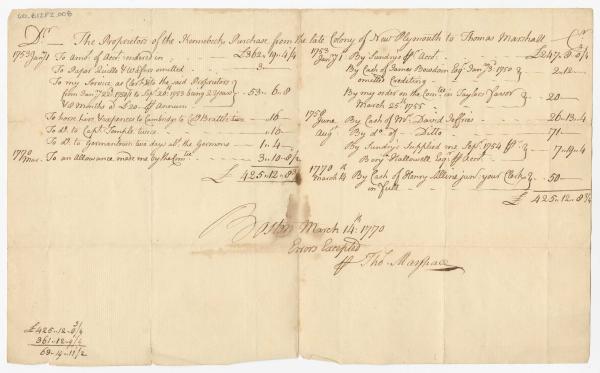 60.B12F2.008
Dr. The Proprietors of the Kennebeck Purchase from the late Colony of New Plymouth to Thomas Marshall Cr.
1753 Jany 1 To Amt of Acct. rendered in £362..19..4/4
To Paper Quills & Wafers omitted 3
To my Service as Clerk to the said Proprietors
from Jany 1752 to Sept. 20 1753 being 2 Years
& 8 months @ £20 ℔ Annum 53..6..8
To horse hire & expences to Cambridge to Colo Brattle twice ..16
To do. to Capt. Temple twice ..16
To do. to Germantown two days abt. the Germans 1..4
1770 Mar. To an allowance made me by the Comtee 3..10..8/2
£425..12..8¾
1753 Jany 1 By Sundrys ℔ Acct. £247
By Cash of James Bowdoin Esqr. Jany 3d. 1750
omitted Crediting 2..12
By my order on the Comtee in Taylers favor
March 25th 1755 20
June By Cash of Mr. David Jeffries 26..13..4
Augt. By do. of Ditto 71
By Sundrys Supplied me Sept. 1754 ℔
Benj. Hallowell Esqr. ℔ Acct. 7..19..4
1770 March 14 By Cash of Henry Alline junr. your Clerk
in full 50
£425..12..8¾
Boston March 14th. 1770
Errors Excepted
℔ Tho. Marshall
£425..12..
361..12..
63..19..11/2